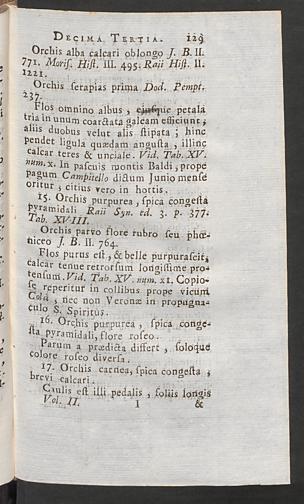 DECIMA TERTIA. 129
Orchis alba calcari oblongo J. B. II.
771. Moris. Hist. III. 495. Raii Hist. II.
1221.
Orchis serapias prima Dod. Pempt.
237.
Flos omnino albus, ejusque petala
tria in unum coarctata galeam efficiunt,
aliis duobus velut alis stipata; hinc
pendet ligula quædam angusta, illinc
calcar teres & unciale. Vid. Tab. XV.
num. x. In pascuis montis Baldi, prope
pagum Campitello dictum Junio mense
oritur, citius vero in hortis.
15. Orchis purpurea, spica congesta
pyramidali Raii Syn. ed. 3. p. 377.
Tab. XVIII.
Orchis parvo flore rubro seu phœ-
niceo J. B. II. 764.
Flos purus est, & belle purpurascit,
calcar tenue retrorsum longissime pro-
tensum. Vid. Tab. XV. num. XI. Copio-
se reperitur in collibus prope vicum
Colà, nec non Veronæ in propugna-
culo S. Spiritus.
16. Orchis purpurea, spica conge-
sta pyramidali, flore roseo.
Parum a prædicta differt, soloque
colore roseo diversa.
17. Orchis carnea, spica congesta,
brevi calcari.
Caulis est illi pedalis, foliis longis
Vol. II. I &